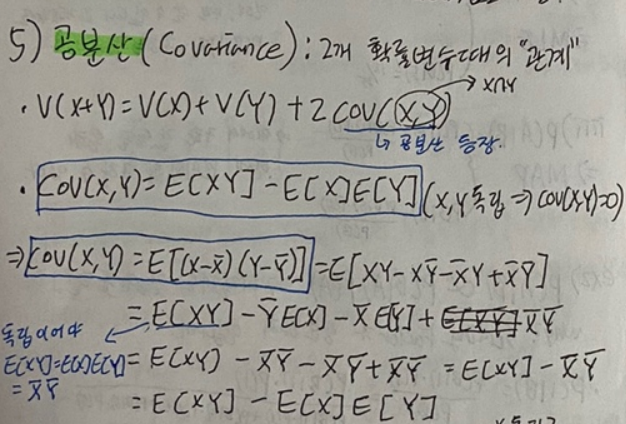 5) 공분산 (Covariance) : 2개 확률변수 간의 "관계"
· V(X+Y) = V(X) + V(Y) + 2 COV(X,Y) → X∩Y
↳ 공분산 등장.
· COV(X,Y) = E[XY] - E[X]E[Y] (X,Y 독립 ⇒ COV(X,Y)=0)
⇒ COV(X,Y) = E[(X-X̄)(Y-Ȳ)] = E[XY - XȲ - X̄Y + X̄Ȳ]
= E[XY] - ȲE[X] - X̄E[Y] + X̄Ȳ
독립이어야
E[XY]=E[X]E[Y] = E[XY] - X̄Ȳ - X̄Ȳ + X̄Ȳ = E[XY] - X̄Ȳ
= X̄Ȳ
= E[XY] - E[X]E[Y]